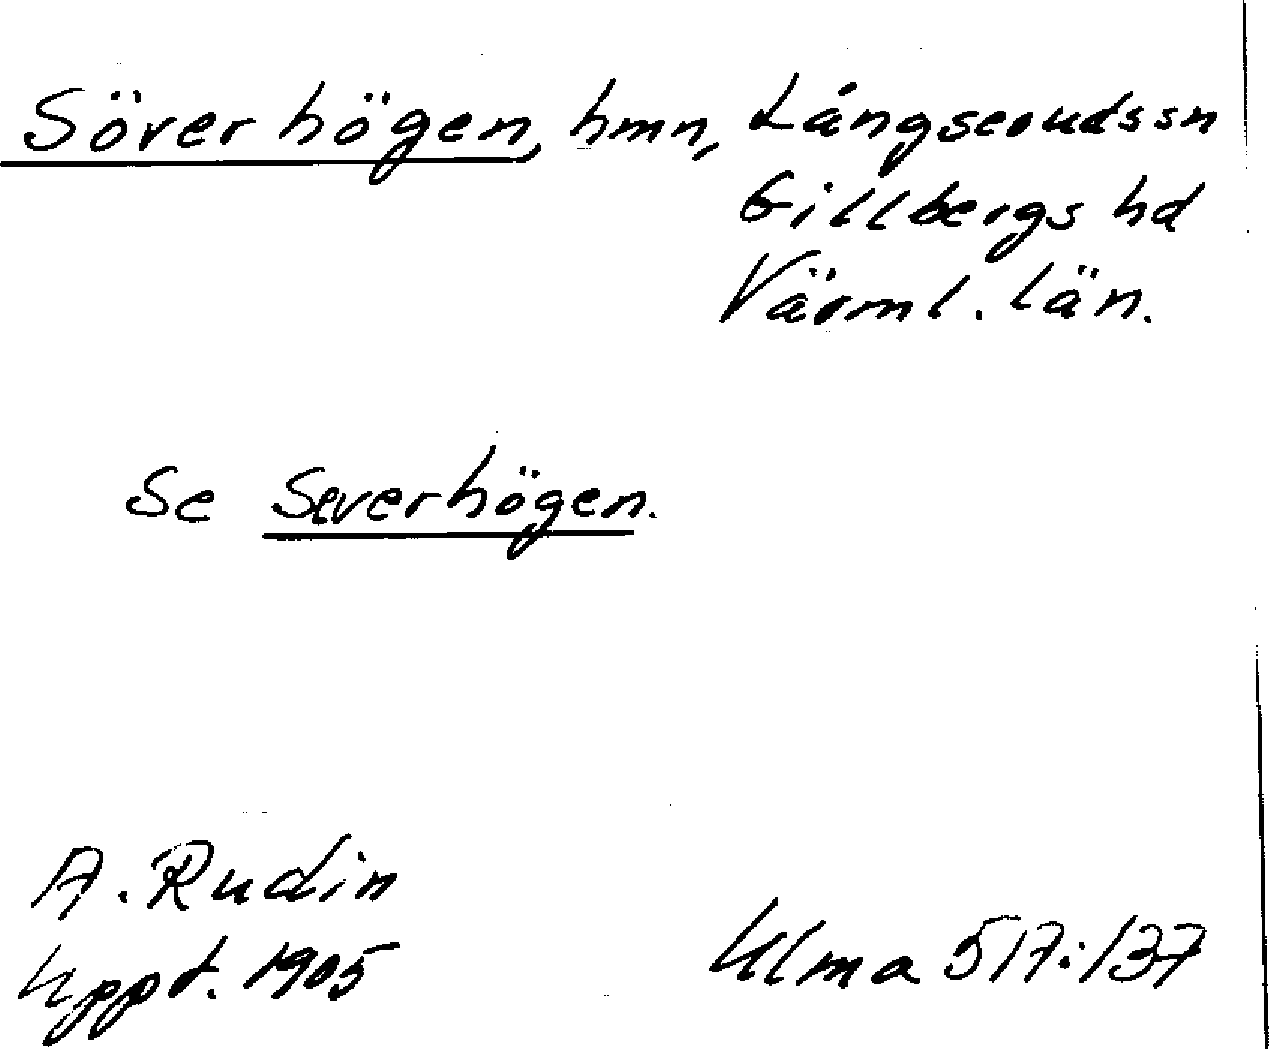 Söverhögen, hmn, Långserudssn
Gillbergs hd
Värml. län.
Se Severhögen.
A. Rudin
Uppt. 1905
Ulma 517:137